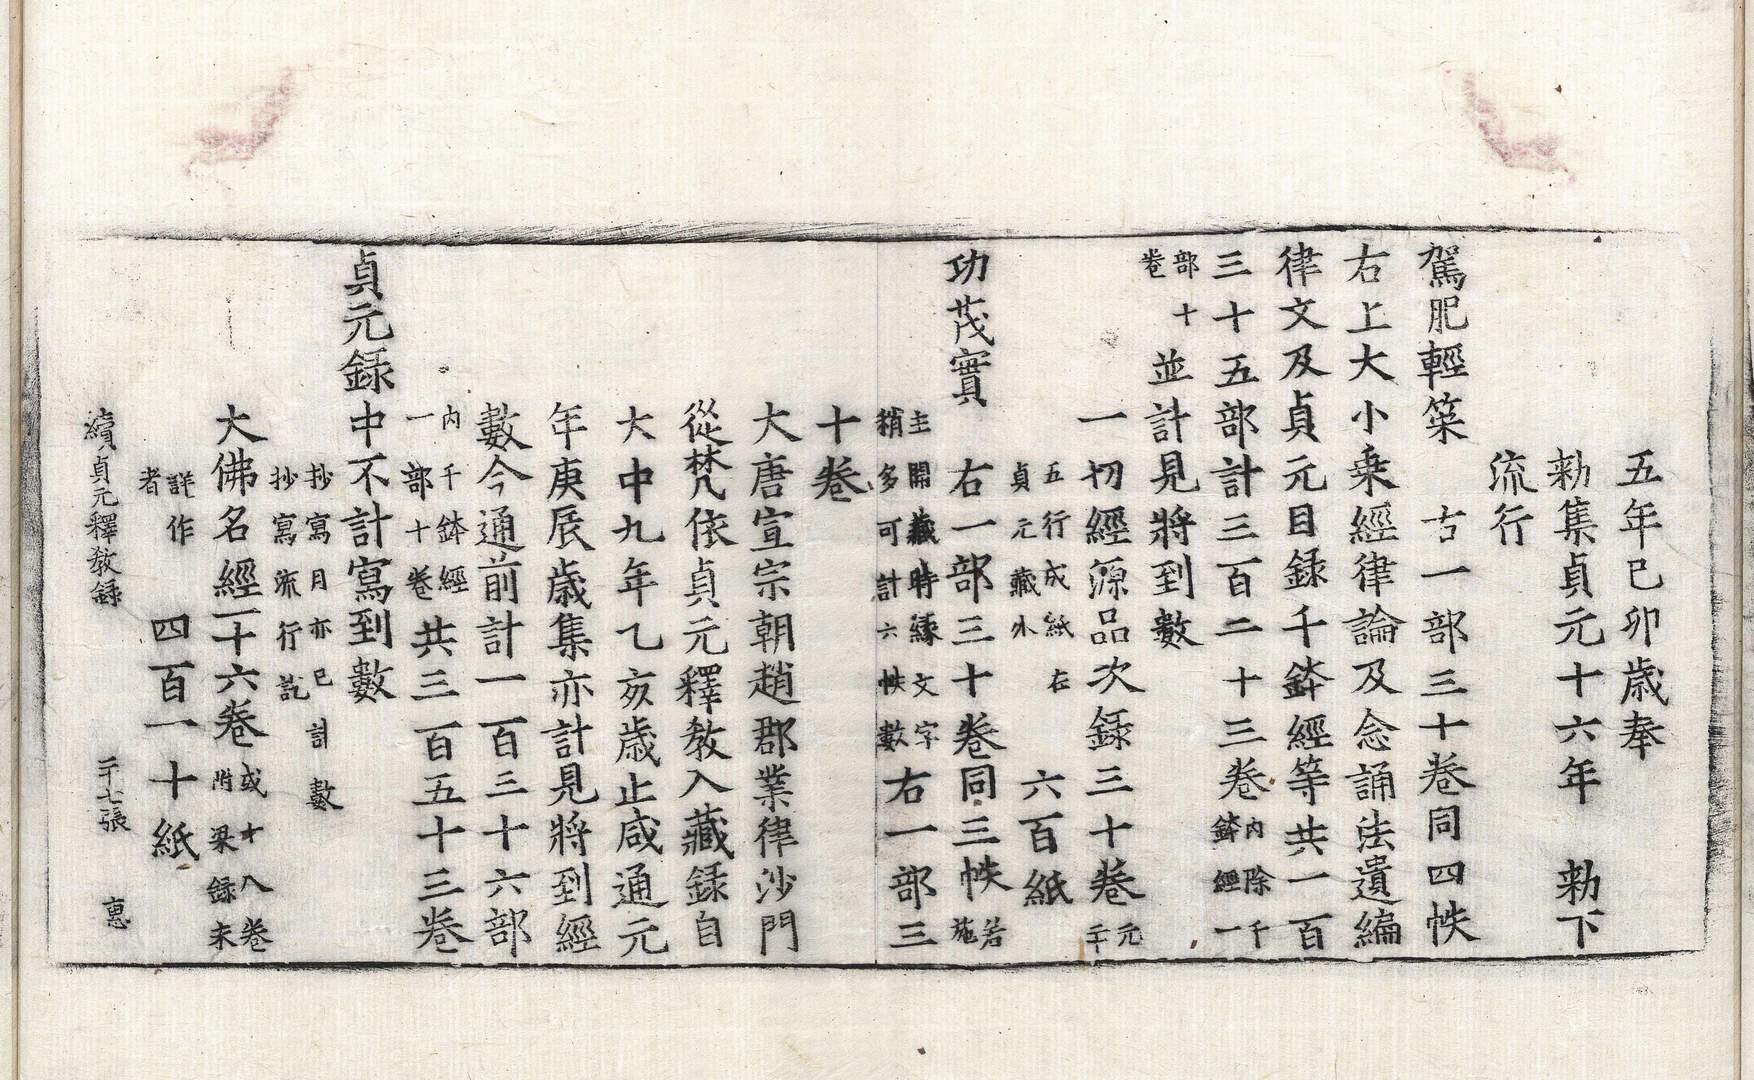 五年己卯歳奉
勑集貞元十六年 勑下
流行
駕肥輕䇿 古一部三十卷同四帙
右上大小乗經律論及念誦法遺編
律文及貞元目録千鉢經等共一百
三十五部計三百二十三卷内除千鉢經一
部十卷並計見將到數
一切經源品次録三十卷元二千
五行成紙在貞元藏外 六百紙
功茂實 右一部三十卷同三帙若施
主開藏時縁文字稍多可計六帙數右一部三
十卷
大唐宣宗朝趙郡業律沙門
從梵依貞元釋教入藏録自
大中九年乙亥歳止咸通元
年庚辰歳集亦計見將到經
數今通前計一百三十六部
内千鉢經一部十卷共三百五十三卷
貞元録中不計寫到數
抄寫月亦已計數抄寫流行訖
大佛名經一十六卷或十八卷附梁録未
詳作者 四百一十紙
續貞元釋教録 二十七張 惠